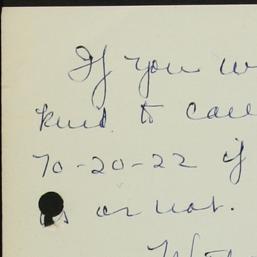 If you w
kind to call
70-20-22 if
is or not.